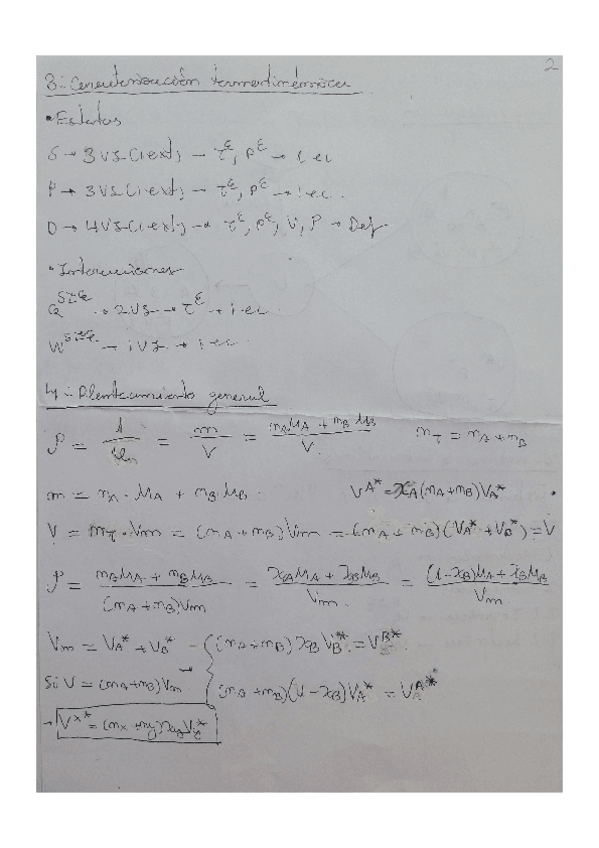 2
3.- Caracterización termodinámica
• Estados
S → 3 VI (1 ext) → T^E, P^E → 1 ec
P → 3 VI (1 ext) → T^E, P^E → 1 ec.
D → 4 VI (1 ext) → T^E, P^E, V, P → Def.
• Interacciones
→ 2 VI → T^E → 1 ec.
→ 1 VI → 1 ec.
4.- Planteamiento general
ρ = 1/ = m/V = (n_A M_A + n_B M_B)/V n_T = n_A + n_B
m = n_A · M_A + n_B M_B V^A* = x_A (n_A + n_B) V_A*
V = n_T · V_m = (n_A + n_B) V_m = (n_A + n_B)(V_A* + V_B*) = V
ρ = (n_A M_A + n_B M_B)/((n_A + n_B) V_m) = (x_A M_A + x_B M_B)/V_m = ((1 - x_B) M_A + x_B M_B)/V_m
V_m = V_A* + V_B* → { (n_A + n_B) x_B V_B* = V^B*
Si V = (n_A + n_B) V_m → { (n_A + n_B)(1 - x_B) V_A* = V^A*
→ V^x* = (n_x + n_y)